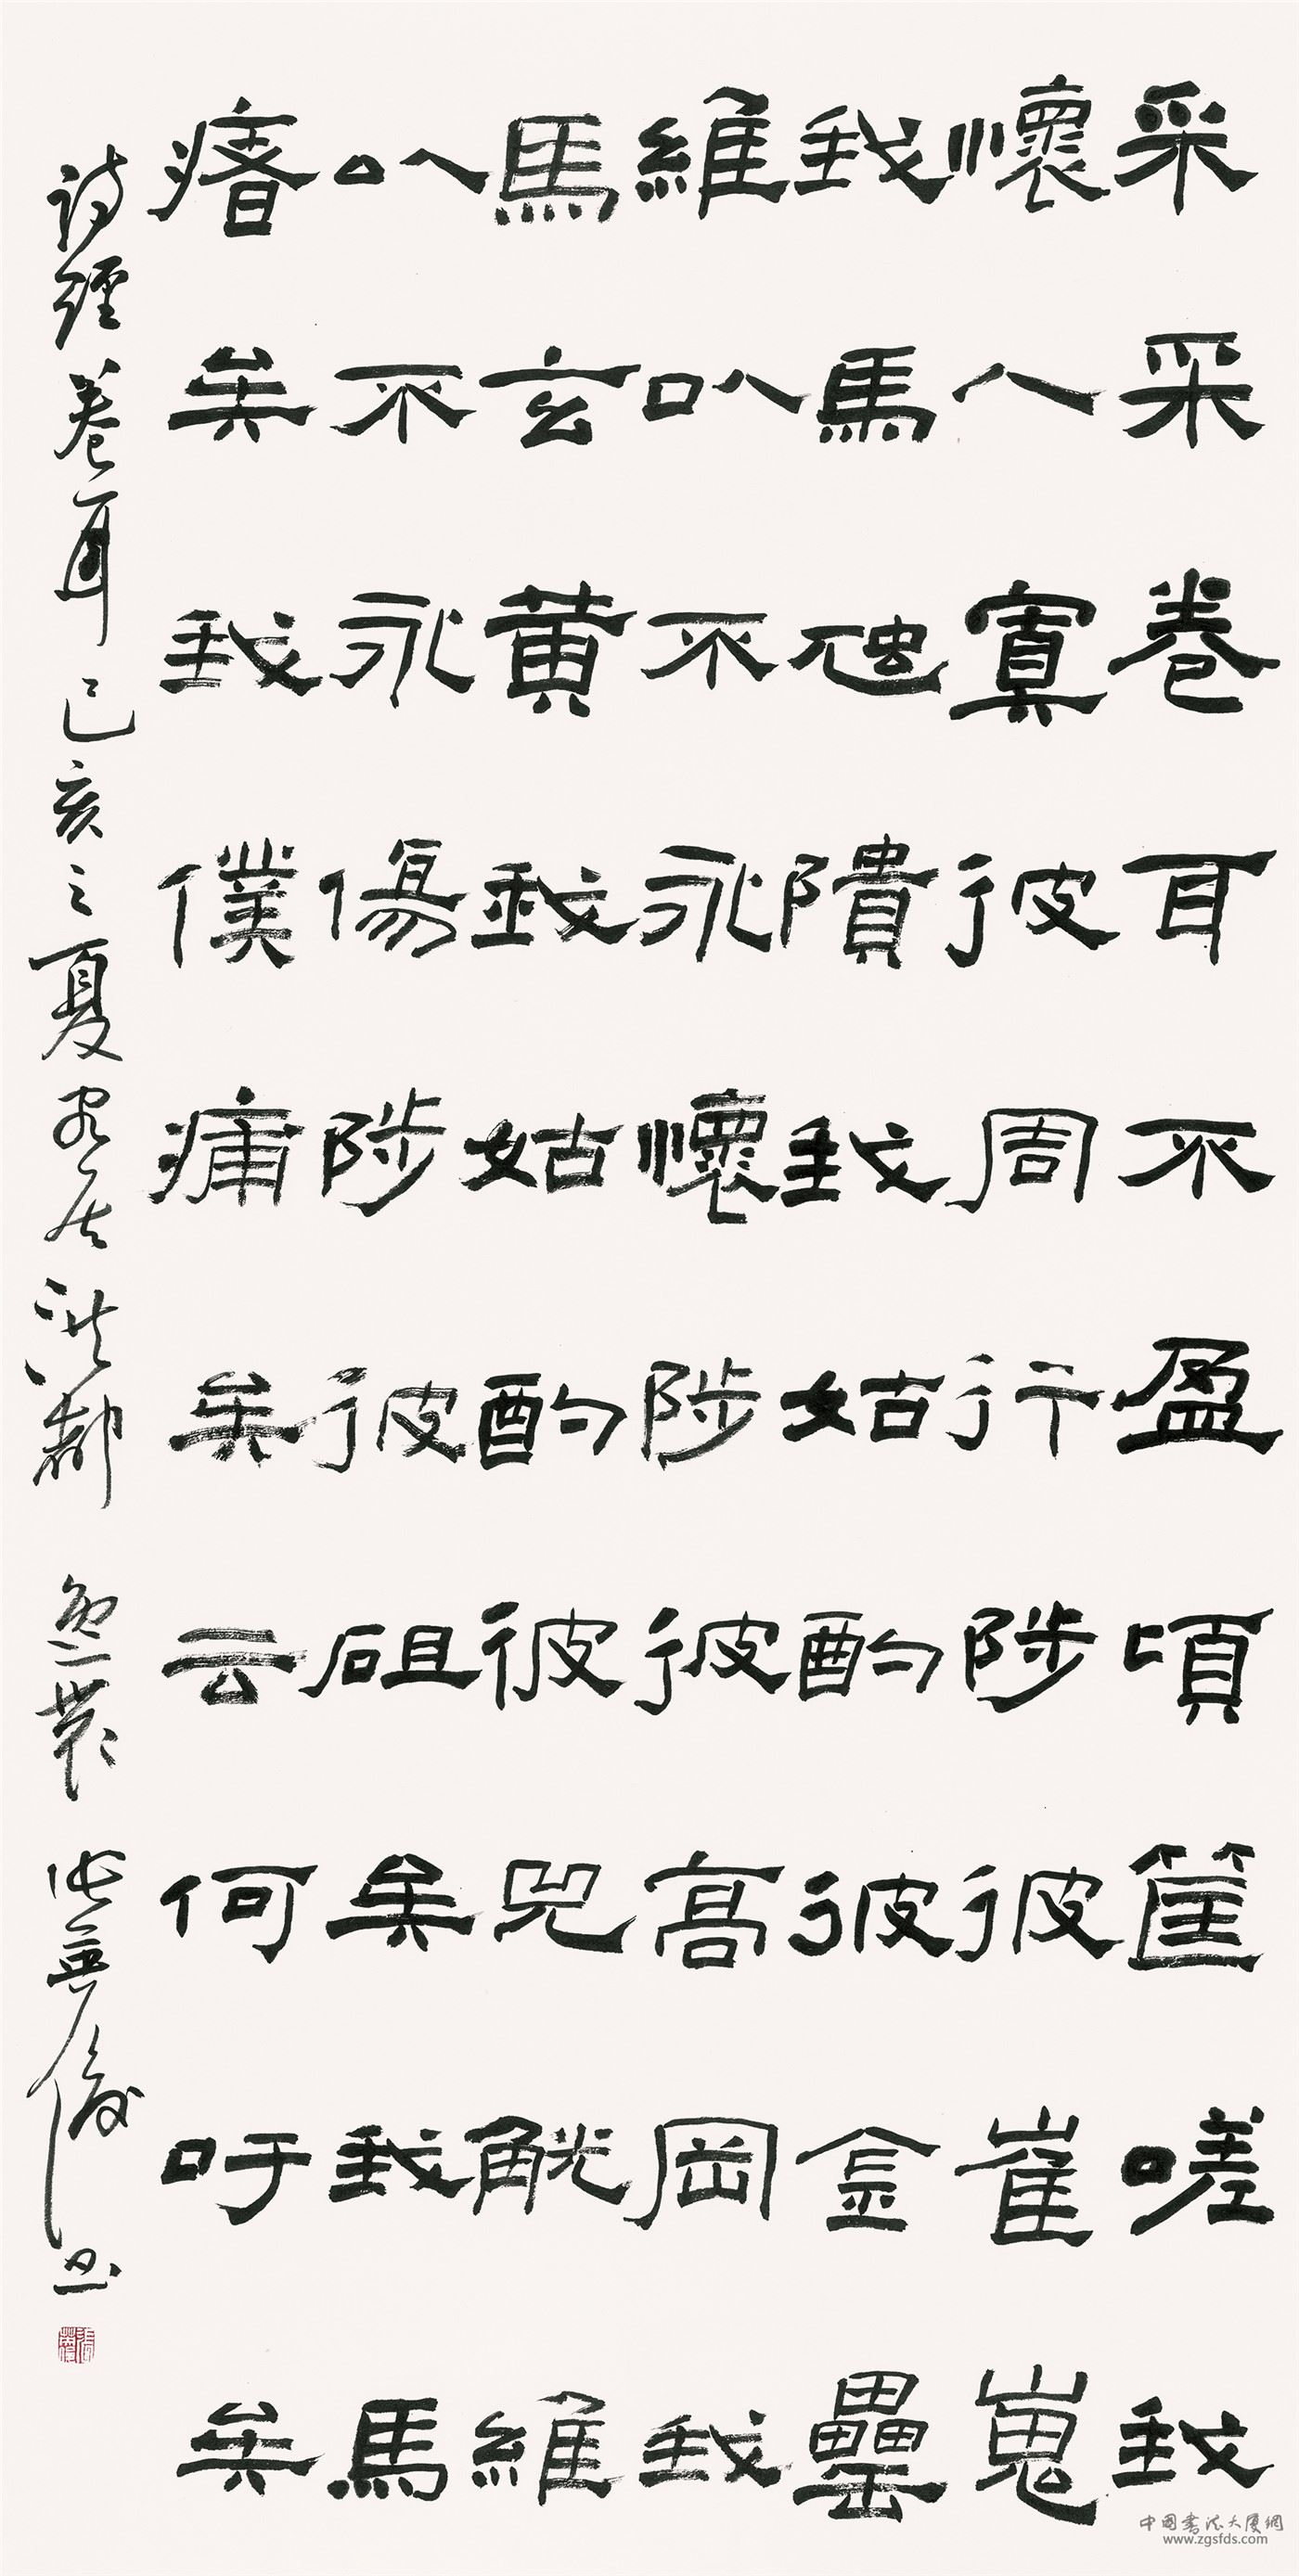 采采卷耳不盈頃筐嗟我
懷人寘彼周行陟彼崔嵬
我馬虺隤我姑酌彼金罍
維以不永懷陟彼高岡我
馬玄黃我姑酌彼兕觥維
以不永傷陟彼砠矣我馬
瘏矣我僕痡矣云何吁矣
詩經卷耳己亥之夏客居洪都
中國書法大廈網
www.zgsfds.com